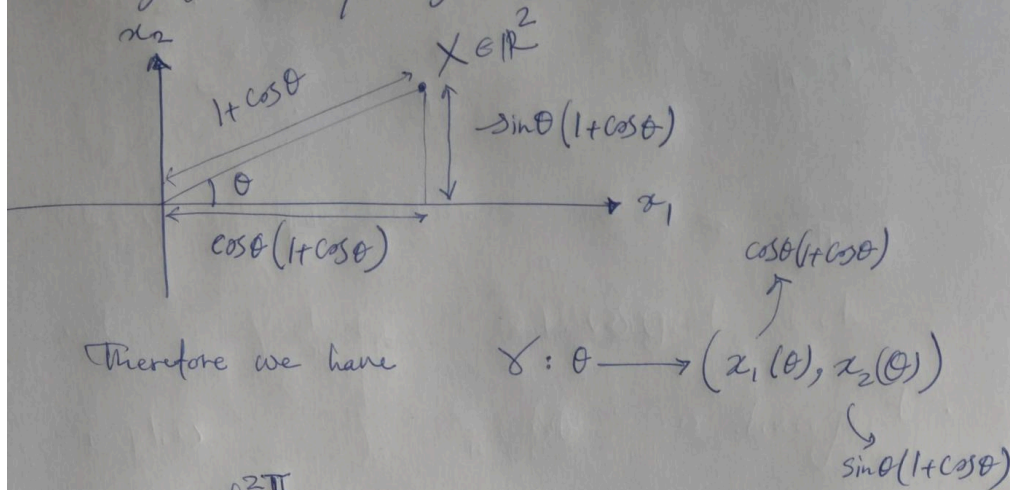 x₂
X ∈ ℝ²
1+cosθ
sinθ(1+cosθ)
θ
x₁
cosθ(1+cosθ)
cosθ(1+cosθ)
Therefore we have γ : θ ⟶ (x₁(θ), x₂(θ))
sinθ(1+cosθ)
2π